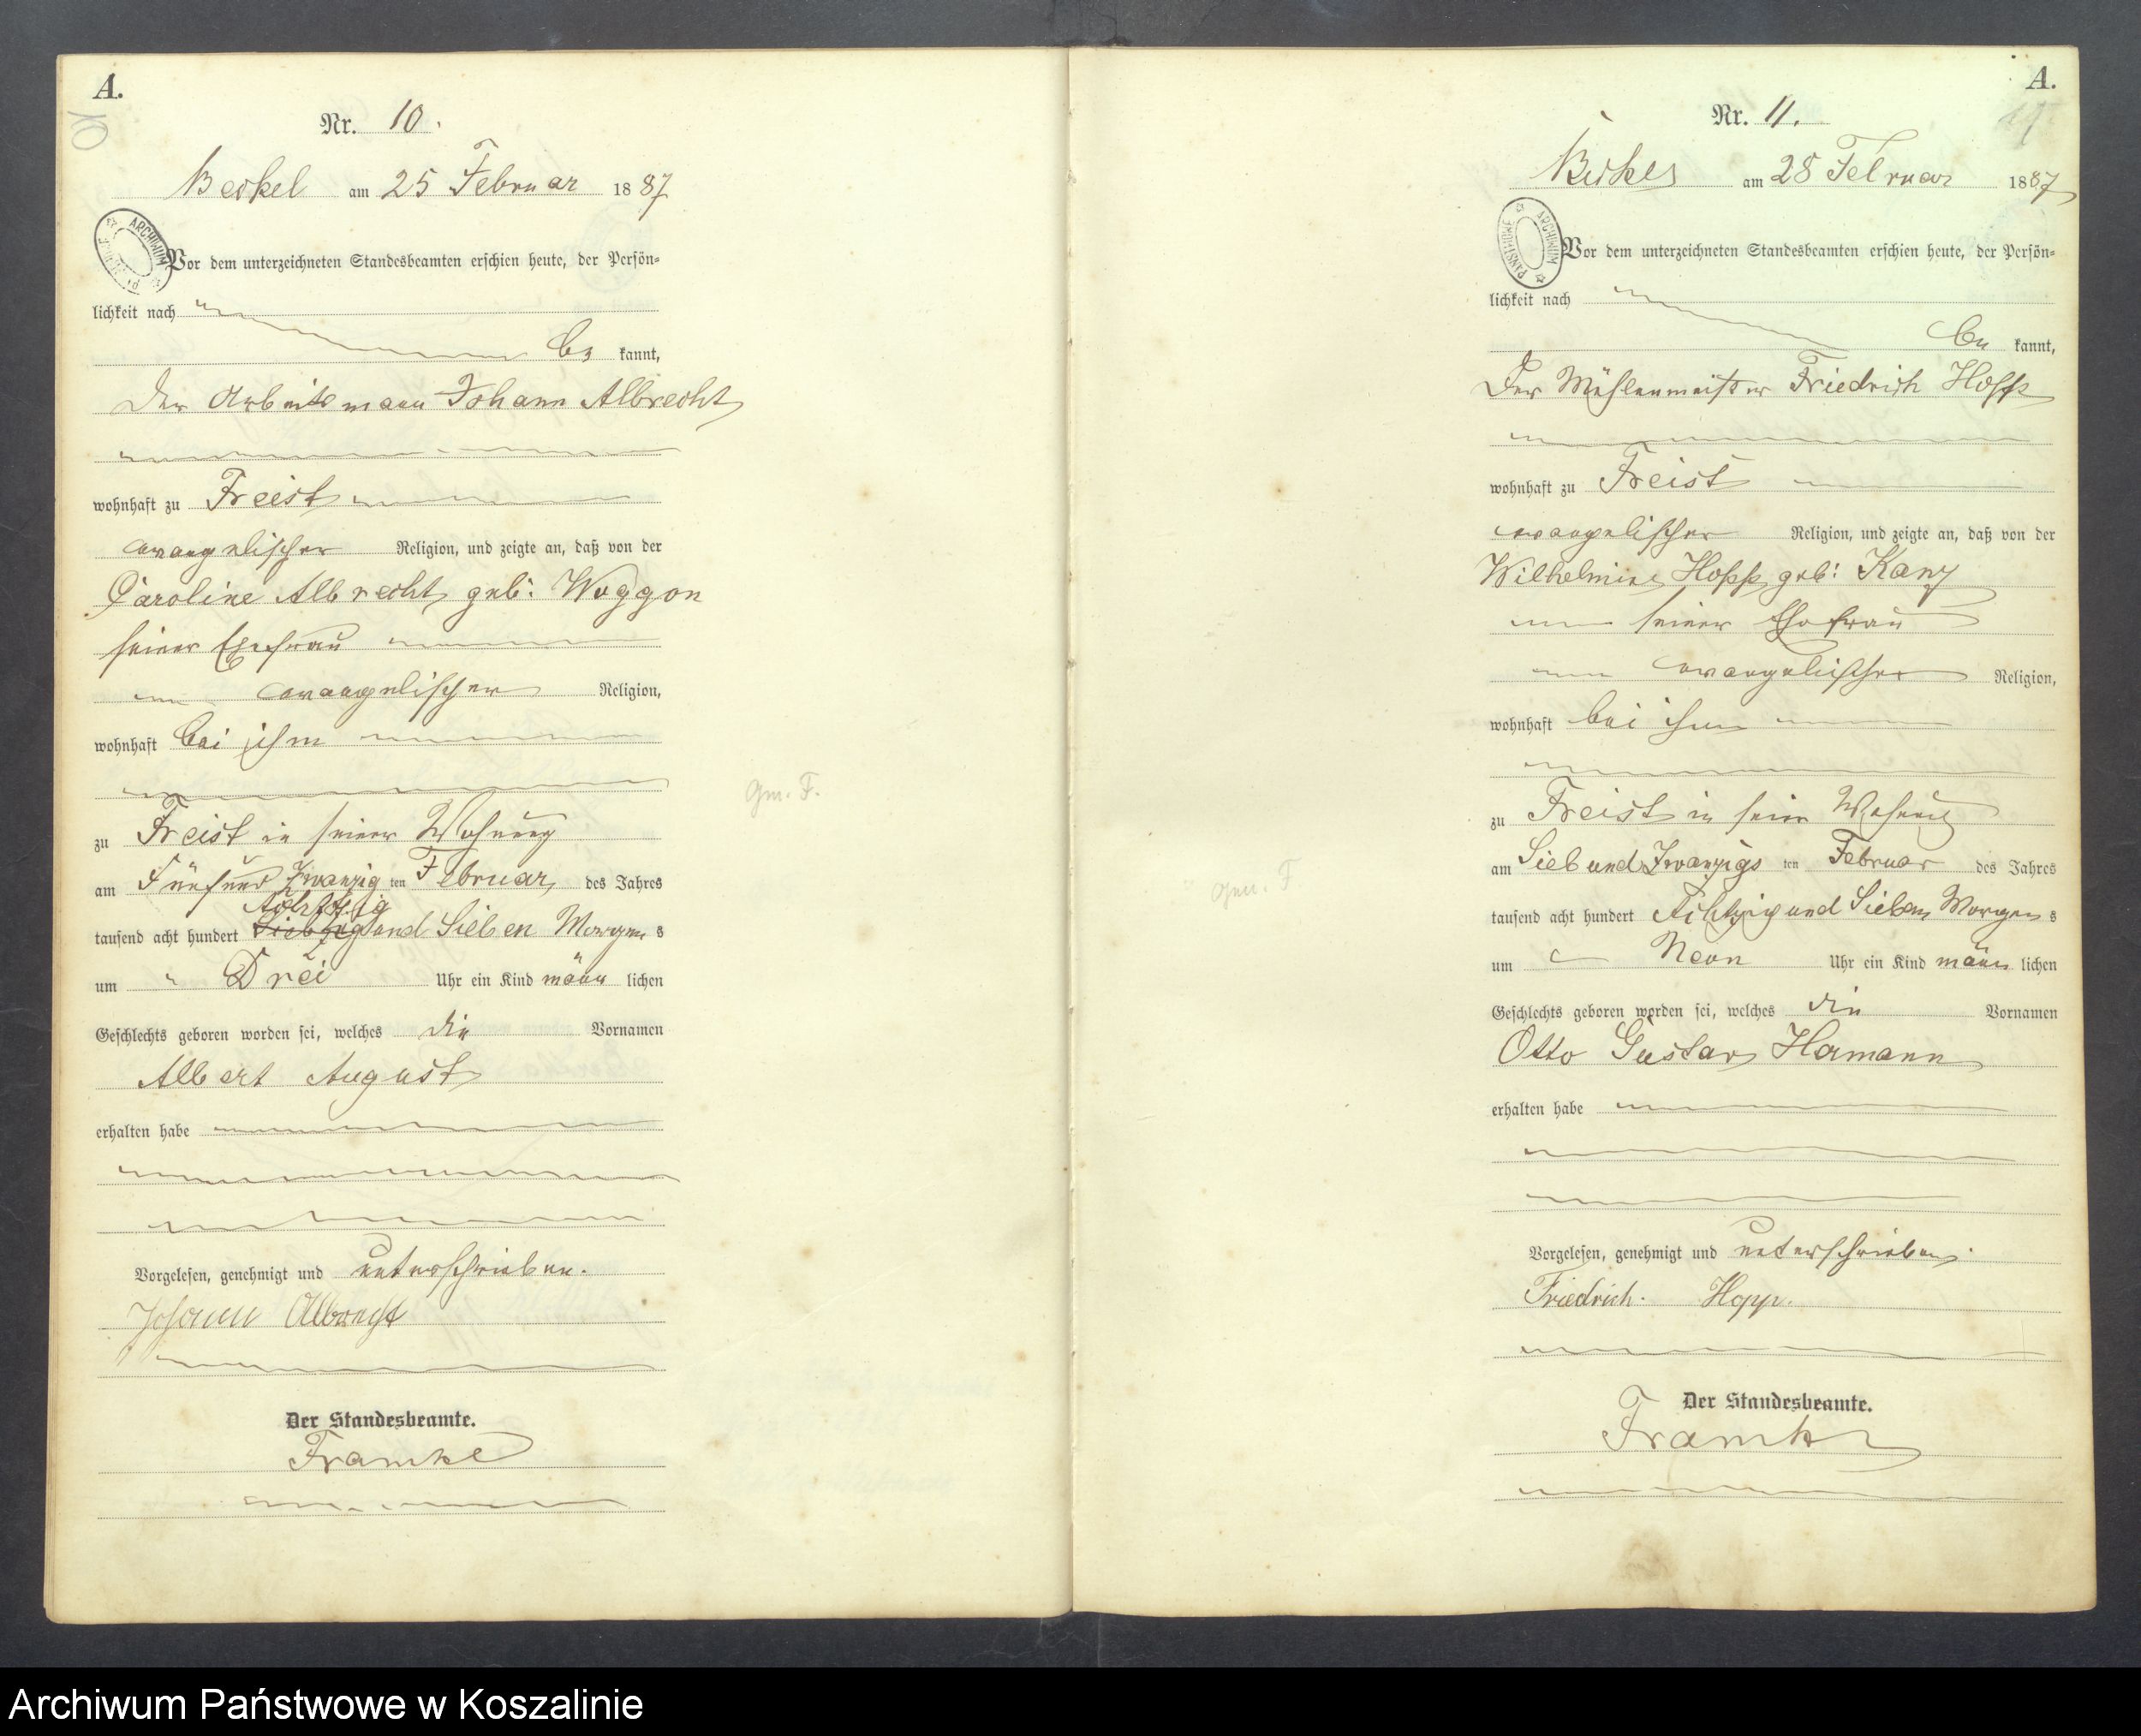 A.
10
Nr. 10.
Beckel am 25 Februar 1887
ARCHIWUM
Vor dem unterzeichneten Standesbeamten erschien heute, der Persön=
lichkeit nach
be kannt,
Der Arbeitsmann Johann Albrecht
wohnhaft zu Freist
evangelischer Religion, und zeigte an, daß von der
Caroline Albrecht geb: Woggon
seiner Ehefrau
evangelischer Religion,
wohnhaft bei ihm
zu Freist in seiner Wohnung
am Fünfund Zwanzig ten Februar des Jahres
Achtzig
tausend acht hundert Siebzig und Sieben Morgens
um " Drei Uhr ein Kind männ lichen
Geschlechts geboren worden sei, welches die Vornamen
Albert August
erhalten habe
Vorgelesen, genehmigt und unterschrieben.
Johann Albrecht
Der Standesbeamte.
Framke
gm. F.
A.
11
Nr. 11.
am 28 Februar 1887
PAŃSTWOWE ARCHIWUM
Vor dem unterzeichneten Standesbeamten erschien heute, der Persön=
lichkeit nach
be kannt,
Der Mühlenmeister Friedrich Hopp
wohnhaft zu Freist
evangelischer Religion, und zeigte an, daß von der
Wilhelmine Hopp geb:
seiner Ehefrau
evangelischer Religion,
wohnhaft bei ihm
zu Freist in seiner Wohnung
am Sieb und Zwanzigs ten Februar des Jahres
tausend acht hundert Achtzig und Sieben Morgens
um Neun Uhr ein Kind männ lichen
Geschlechts geboren worden sei, welches die Vornamen
Otto Gustav Hermann
erhalten habe
Vorgelesen, genehmigt und unterschrieben.
Friedrich. Hopp.
Der Standesbeamte.
Framke
gm. F.
Archiwum Państwowe w Koszalinie